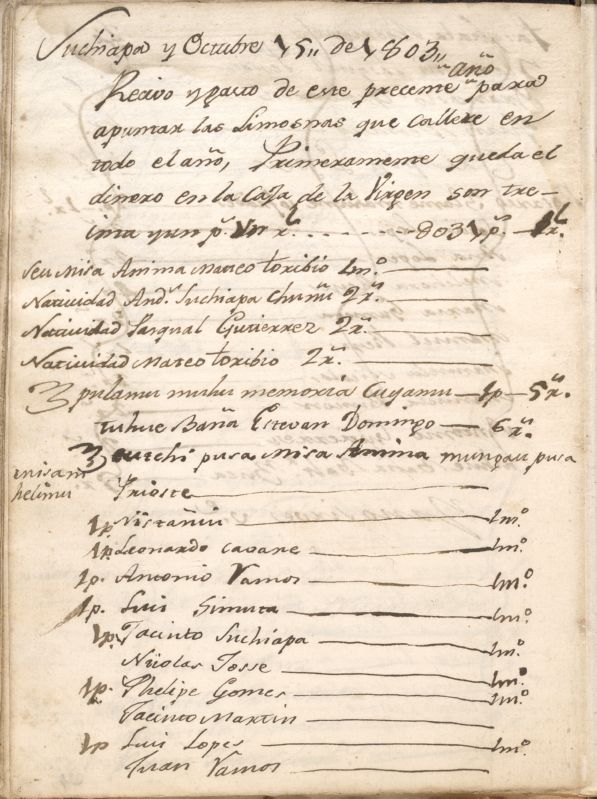 Suchiapa y Octubre 15,, de 1803,, año
Recivo y gasto de este precente para
apuntar las Limosnas que collere en
todo el año, Primeramente queda el
dinero en la Caja de la Virgen son tre-
inta y un p.s Un r.l - - - - - - 803 1 p.s - 1 r.l
Seu Misa Anima Mateo toribio 1m.o
Natividad And.s Suchiapa chunu 2r.s
Natividad Pasqual Gutierrez 2r.s
Natividad Mateo toribio 2r.s
3 pulamu muhu memoria Cuyamu — 1p — 5r.s
tuhue Baña Estevan Domingo — 6r.s
3 curchi pusa Misa Anima mungau pusa
misam Prioste
helimu
1p. Nistañiu 1m.o
1p. Leonardo caoane 1m.o
1p. Antonio Vamos 1m.o
1p. Luis Simuta 1m.o
1p. Jacinto Suchiapa 1m.o
Nicolas Josse 1m.o
1p. Phelipe Gomes 1m.o
Jacinto Martin
1p Luis Lopes 1m.o
Juan Vamos